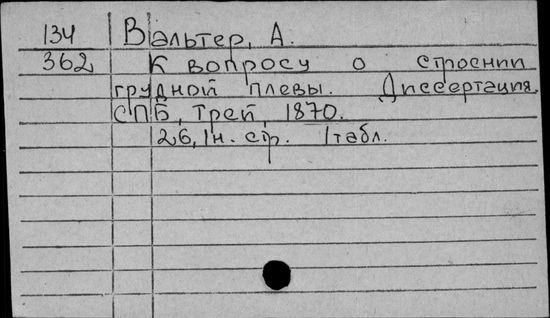 134 Вальтер, А.
362 К вопросу о строении
грудной плевы. Диссертация.
СПБ, Трей, 1870.
26, 1н. стр. 1табл.